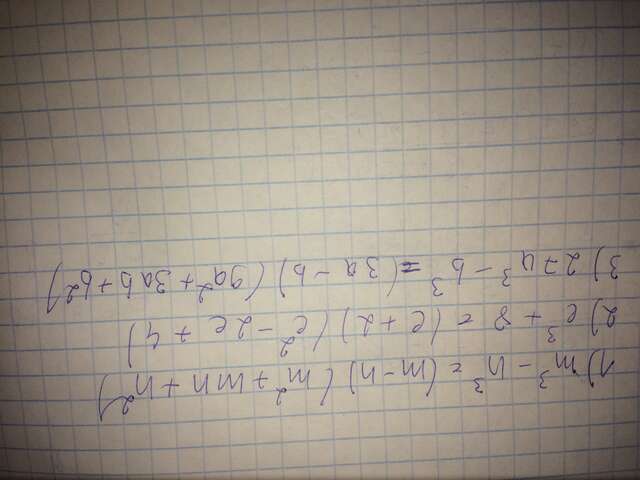 1) m³ - n³ = (m - n) (m² + mn + n²)
2) c³ + 8 = (c + 2) (c² - 2c + 4)
3) 27a³ - b³ = (3a - b) (9a² + 3ab + b²)